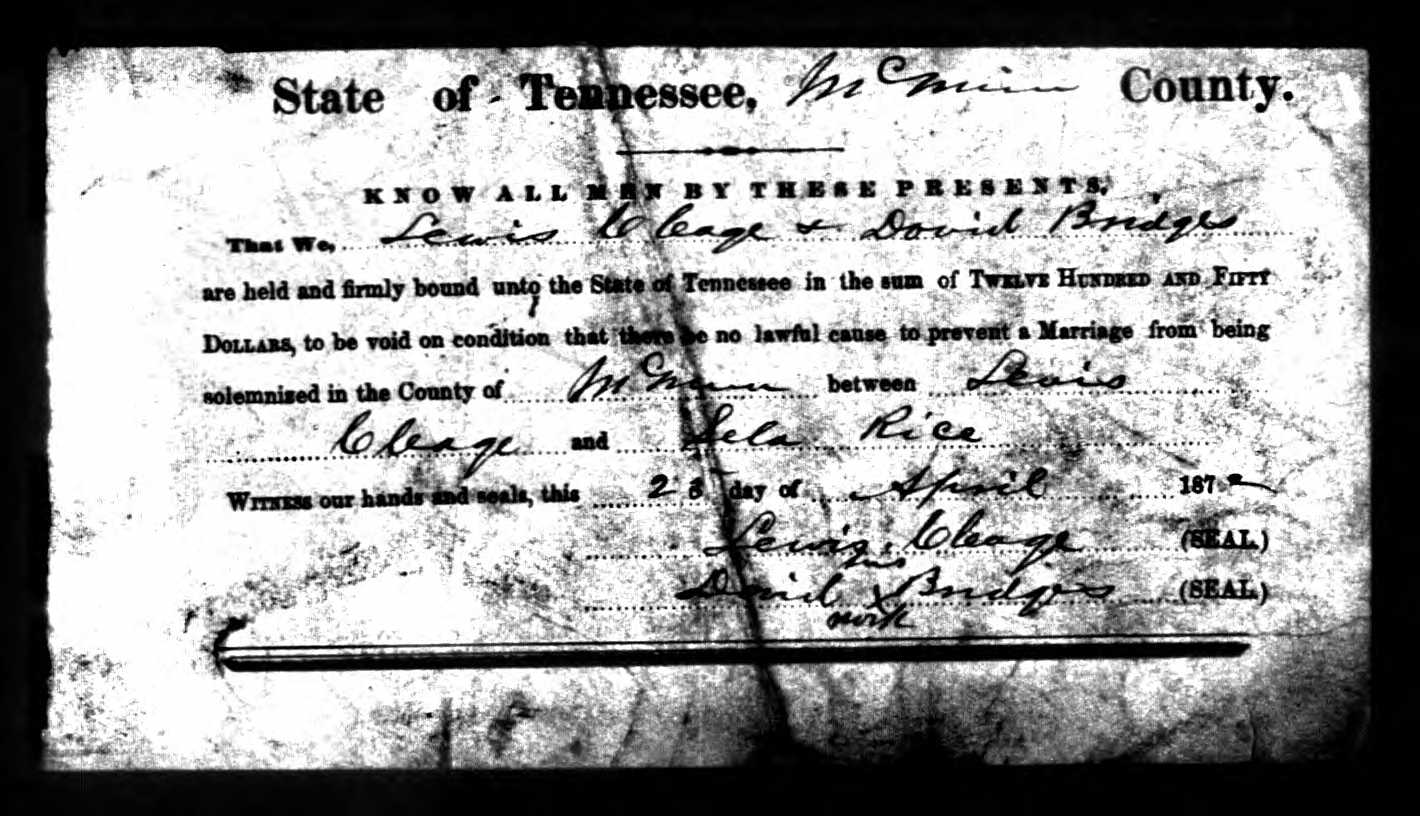 State of Tennessee, McMinn County.
KNOW ALL MEN BY THESE PRESENTS,
That We, Lewis Cleage & David Bridges
are held and firmly bound unto the State of Tennessee in the sum of TWELVE HUNDRED AND FIFTY
DOLLARS, to be void on condition that there be no lawful cause to prevent a Marriage from being
solemnized in the County of McMinn between Lewis
Cleage and Rice
WITNESS our hands and seals, this 23 day of April 1872
Lewis Cleage (SEAL)
his
David x Bridges (SEAL)
mark